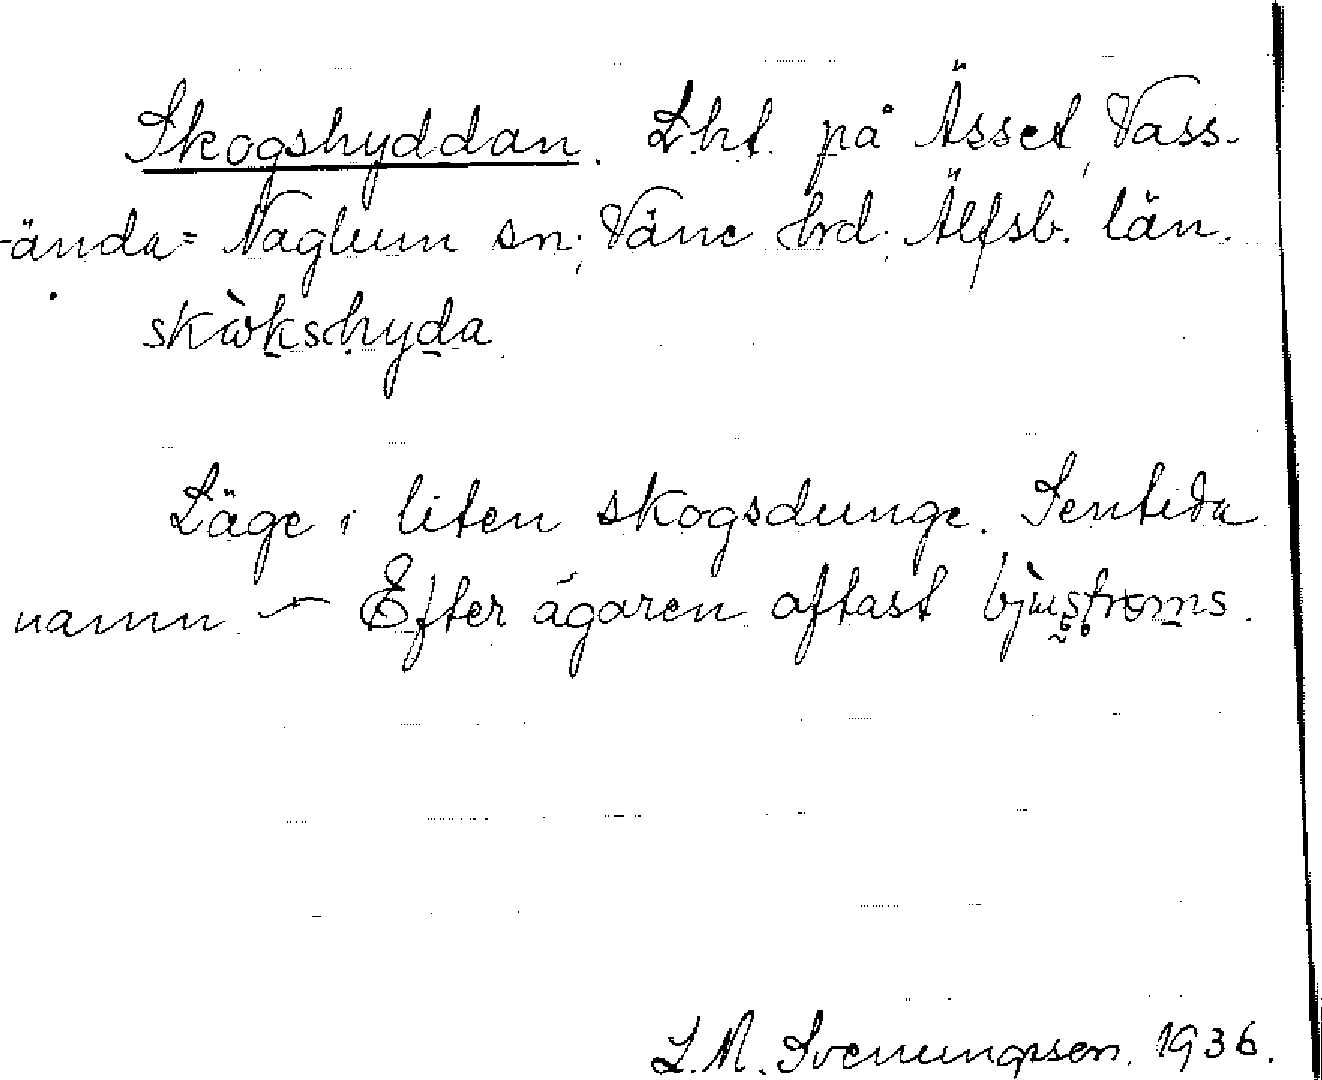 Skogshyddan. Lht. på Åsset, Vass-
-ända= Naglum sn; Väne hrd. Älfsb. län.
skὼkshyda
Läge i liten skogsdunge. Sentida
namn – Efter ägaren oftast bjùstroms.
L.M. Svenungsson. 1936.